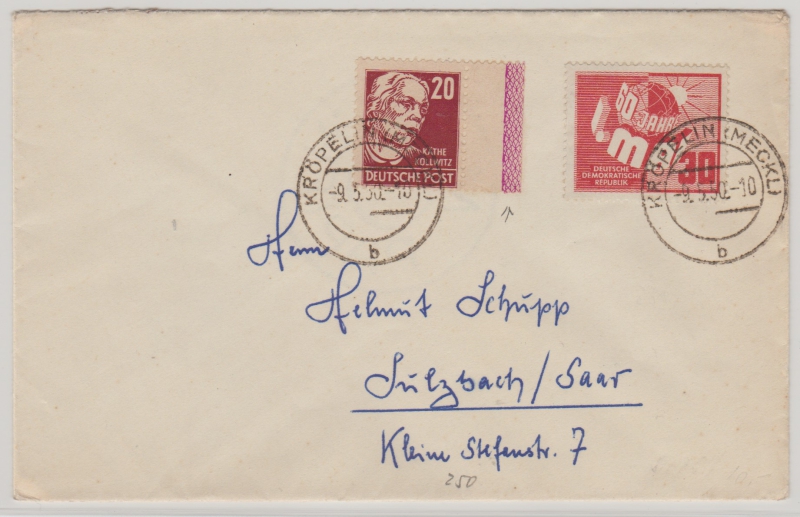 20
KÄTHE
KOLLWITZ
DEUTSCHE POST
60 JAHRE
1. mai
DEUTSCHE
DEMOKRATISCHE
REPUBLIK
30
KRÖPELIN (MECKL)
-9.5.50.-10
b
KRÖPELIN (MECKL)
-9.5.50.-10
b
Herrn
Helmut Schupp
Sulzbach/Saar
Kleine Stefenstr. 7
250